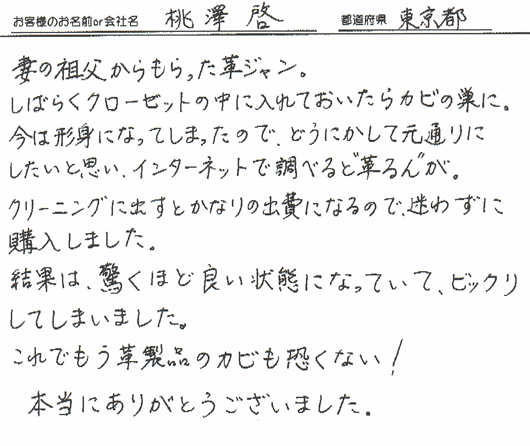 お客様のお名前or会社名 桃澤 啓 都道府県 東京都
妻の祖父からもらった革ジャン。
しばらくクローゼットの中に入れておいたらカビの巣に。
今は形身になってしまったので、どうにかして元通りに
したいと思い、インターネットで調べると"革るん"が。
クリーニングに出すとかなりの出費になるので、迷わずに
購入しました。
結果は、驚くほど良い状態になっていて、ビックリ
してしまいました。
これでもう革製品のカビも恐くない!
本当にありがとうございました。